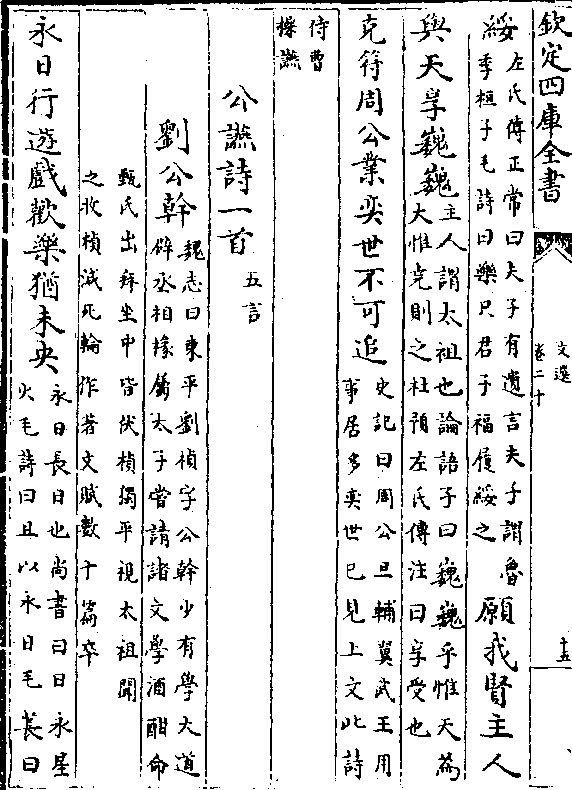 欽定四庫全書
文選
卷二十
十五
綏
左氏傳正常曰夫子有遺言夫子謂魯
季桓子毛詩曰樂只君子福履綏之
願我賢主人
與天享巍巍
主人謂太祖也論語子曰巍巍乎惟天為
大惟堯則之杜預左氏傳注曰享受也
克符周公業奕世不可追
史記曰周公旦輔翼武王用
事居多奕世已見上文此詩
侍曹
操讌
公讌詩一首
五言
劉公幹
魏志曰東平劉楨字公幹少有學大道
辟丞相掾屬太子嘗請諸文學酒酣命
甄氏出拜坐中皆伏楨獨平視太祖聞
之收楨減死輪作著文賦數十篇卒
永日行遊戲歡樂猶未央
永日長日也尚書曰日永星
火毛詩曰且以永日毛萇曰